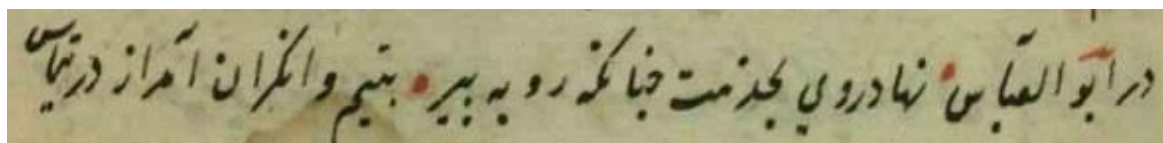 در ابو العباس نهاد روی بخدمت چنانکه روبه پیر یتیم وانکران آمد از در تیاس